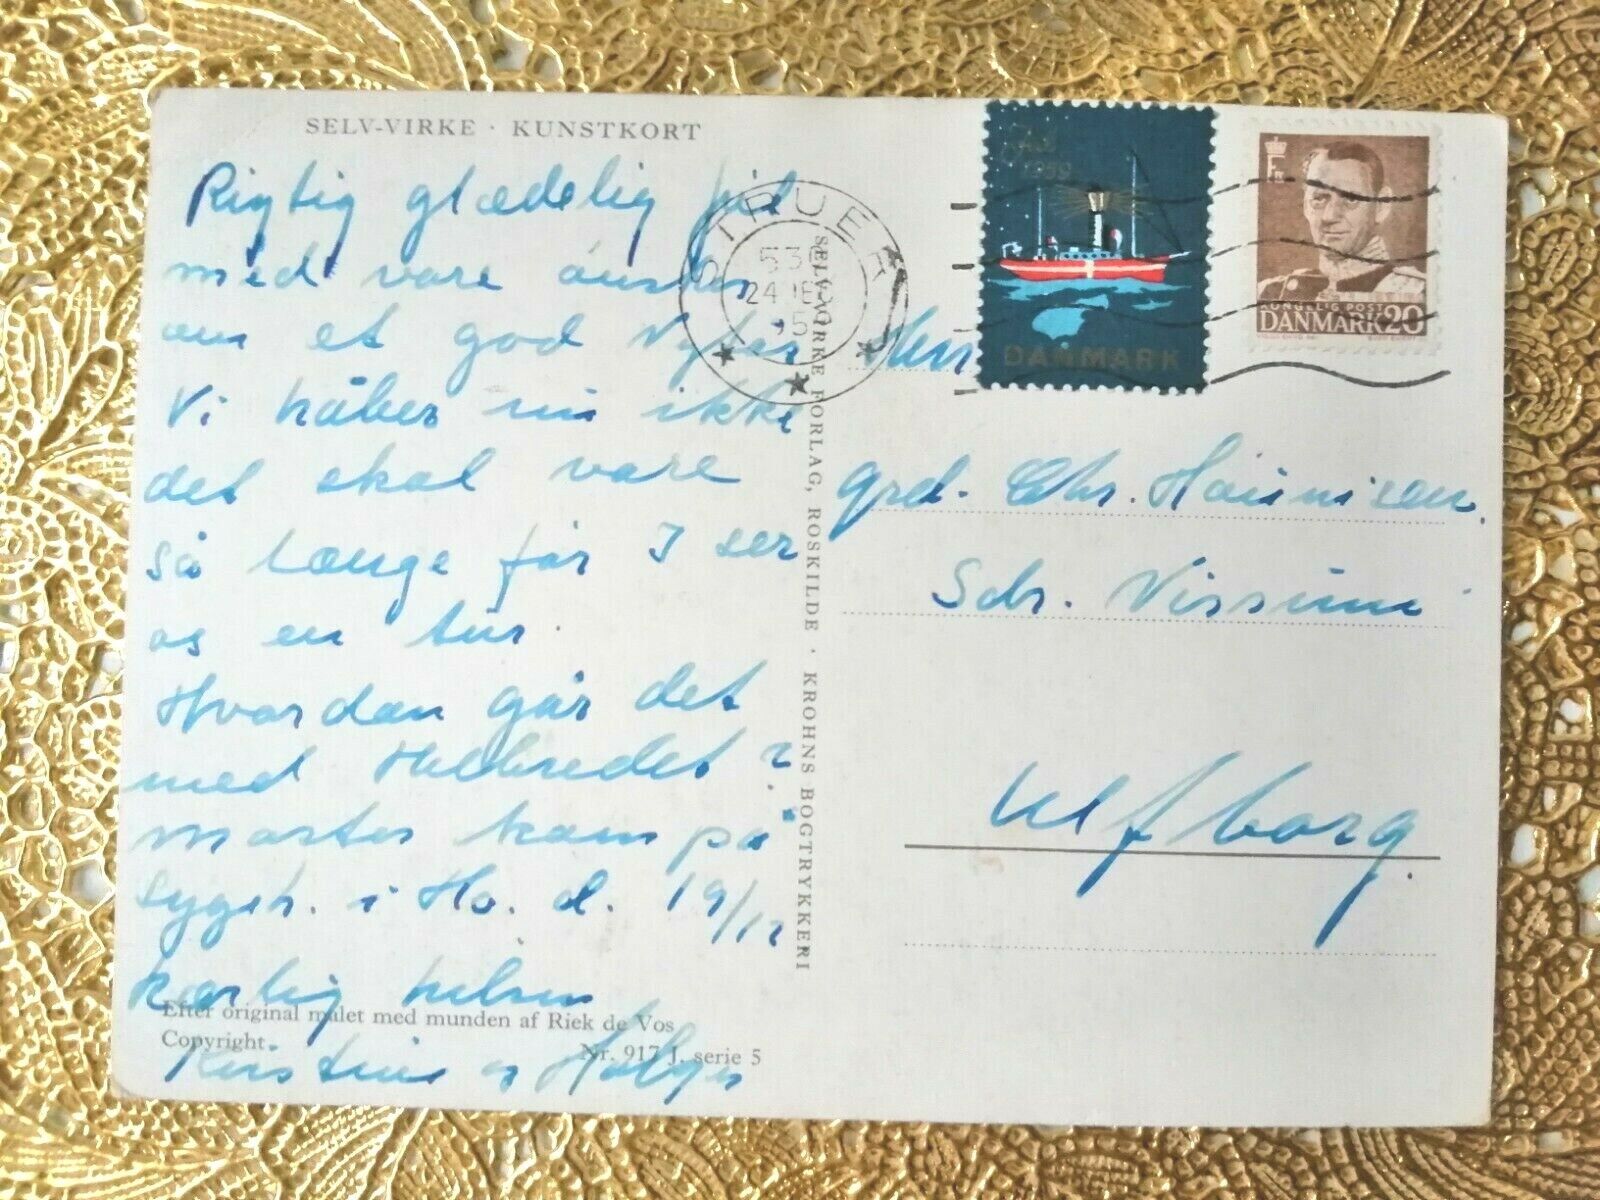 SELV-VIRKE · KUNSTKORT
Rigtig glædelig jul
med vare ønsker
om et god Nytår
Vi håber nu ikke
det skal vare
så længe før I ser
os en tur.
Hvordan går det
med Helbredet?
morter kom på
sygeh. i Ho. d. 19/12
kærlig hilsen
Kirstine og Holger
Efter original malet med munden af Riek de Vos
Copyright. Nr. 917 J. serie 5
SELV-VIRKE FORLAG, ROSKILDE · KROHNS BOGTRYKKERI
STRUER
24 DEC
Jul
1959
DANMARK
KONGELIG POST
DANMARK 20
Hr
grd. Chr. Haunisen.
Sdr. Vissum
Ulfborg.